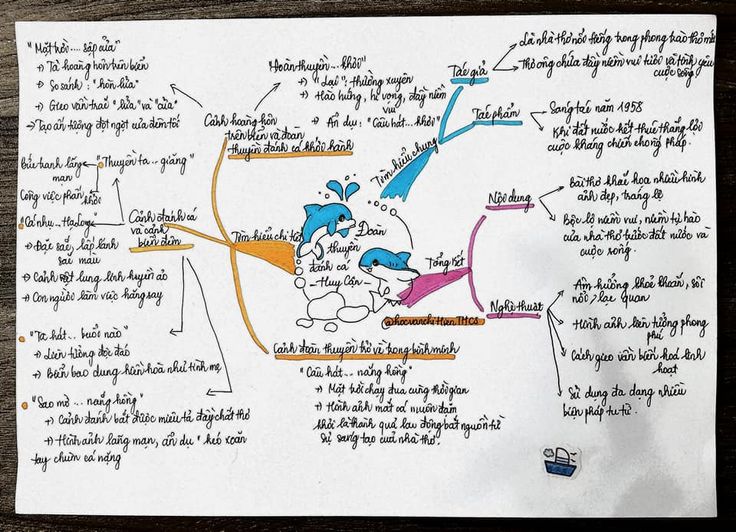 "Mặt trời.... sập cửa"
→ Tả hoàng hôn trên biển
→ So sánh : "hòn lửa"
→ Gieo vần trắc "lửa" và "cửa"
→ Tạo ấn tượng đột ngột của đêm tối
Bức tranh lãng mạn
"Thuyền ta.. giăng"
Công việc phấn khởi
"Cá nhụ... Hạ Long"
→ Đặc sắc, lấp lánh
sắc màu
→ Cảnh đẹp lung linh huyền ảo
→ Con người làm việc hăng say
"Ta hát... buổi nào"
→ Liên tưởng độc đáo
→ Biển bao dung hiền hoà như tình mẹ
"Sao mờ ... nắng hồng"
→ Cảnh đánh bắt được miêu tả đầy chất thơ
→ Hình ảnh lãng mạn, ẩn dụ "kéo xoăn
tay chùm cá nặng
"Đoàn thuyền... khơi"
→ "Lại" : thường xuyên
→ Hào hứng, hi vọng, đầy niềm
vui
→ Ẩn dụ : "Câu hát... khơi"
Cảnh hoàng hôn
trên biển và đoàn
thuyền đánh cá khởi hành
Cảnh đánh cá
và cảnh
biển đêm
Tìm hiểu chi tiết
Cảnh đoàn thuyền trở về trong bình minh
"Câu hát... nắng hồng"
→ Mặt trời chạy đua cùng thời gian
→ Hình ảnh mắt cá muôn dặm
khơi là thành quả lao động bắt nguồn từ
sự sáng tạo của nhà thơ.
Đoàn
thuyền
đánh cá
- Huy Cận -
@hocvanchiHien.THCS
Tìm hiểu chung
Tác giả
Là nhà thơ nổi tiếng trong phong trào thơ mới
Thơ ông chứa đầy niềm vui tươi và tình yêu
cuộc sống
Tác phẩm
Sáng tác năm 1958
Khi đất nước kết thúc thắng lợi
cuộc kháng chiến chống Pháp.
Tổng kết
Nội dung
Bài thơ khắc hoạ nhiều hình
ảnh đẹp, tráng lệ
Bộc lộ niềm vui, niềm tự hào
của nhà thơ trước đất nước và
cuộc sống.
Nghệ thuật
Âm hưởng khoẻ khoắn, sôi
nổi, lạc quan
Hình ảnh liên tưởng phong
phú
Cách gieo vần biến hoá linh
hoạt
Sử dụng đa dạng nhiều
biện pháp tu từ.